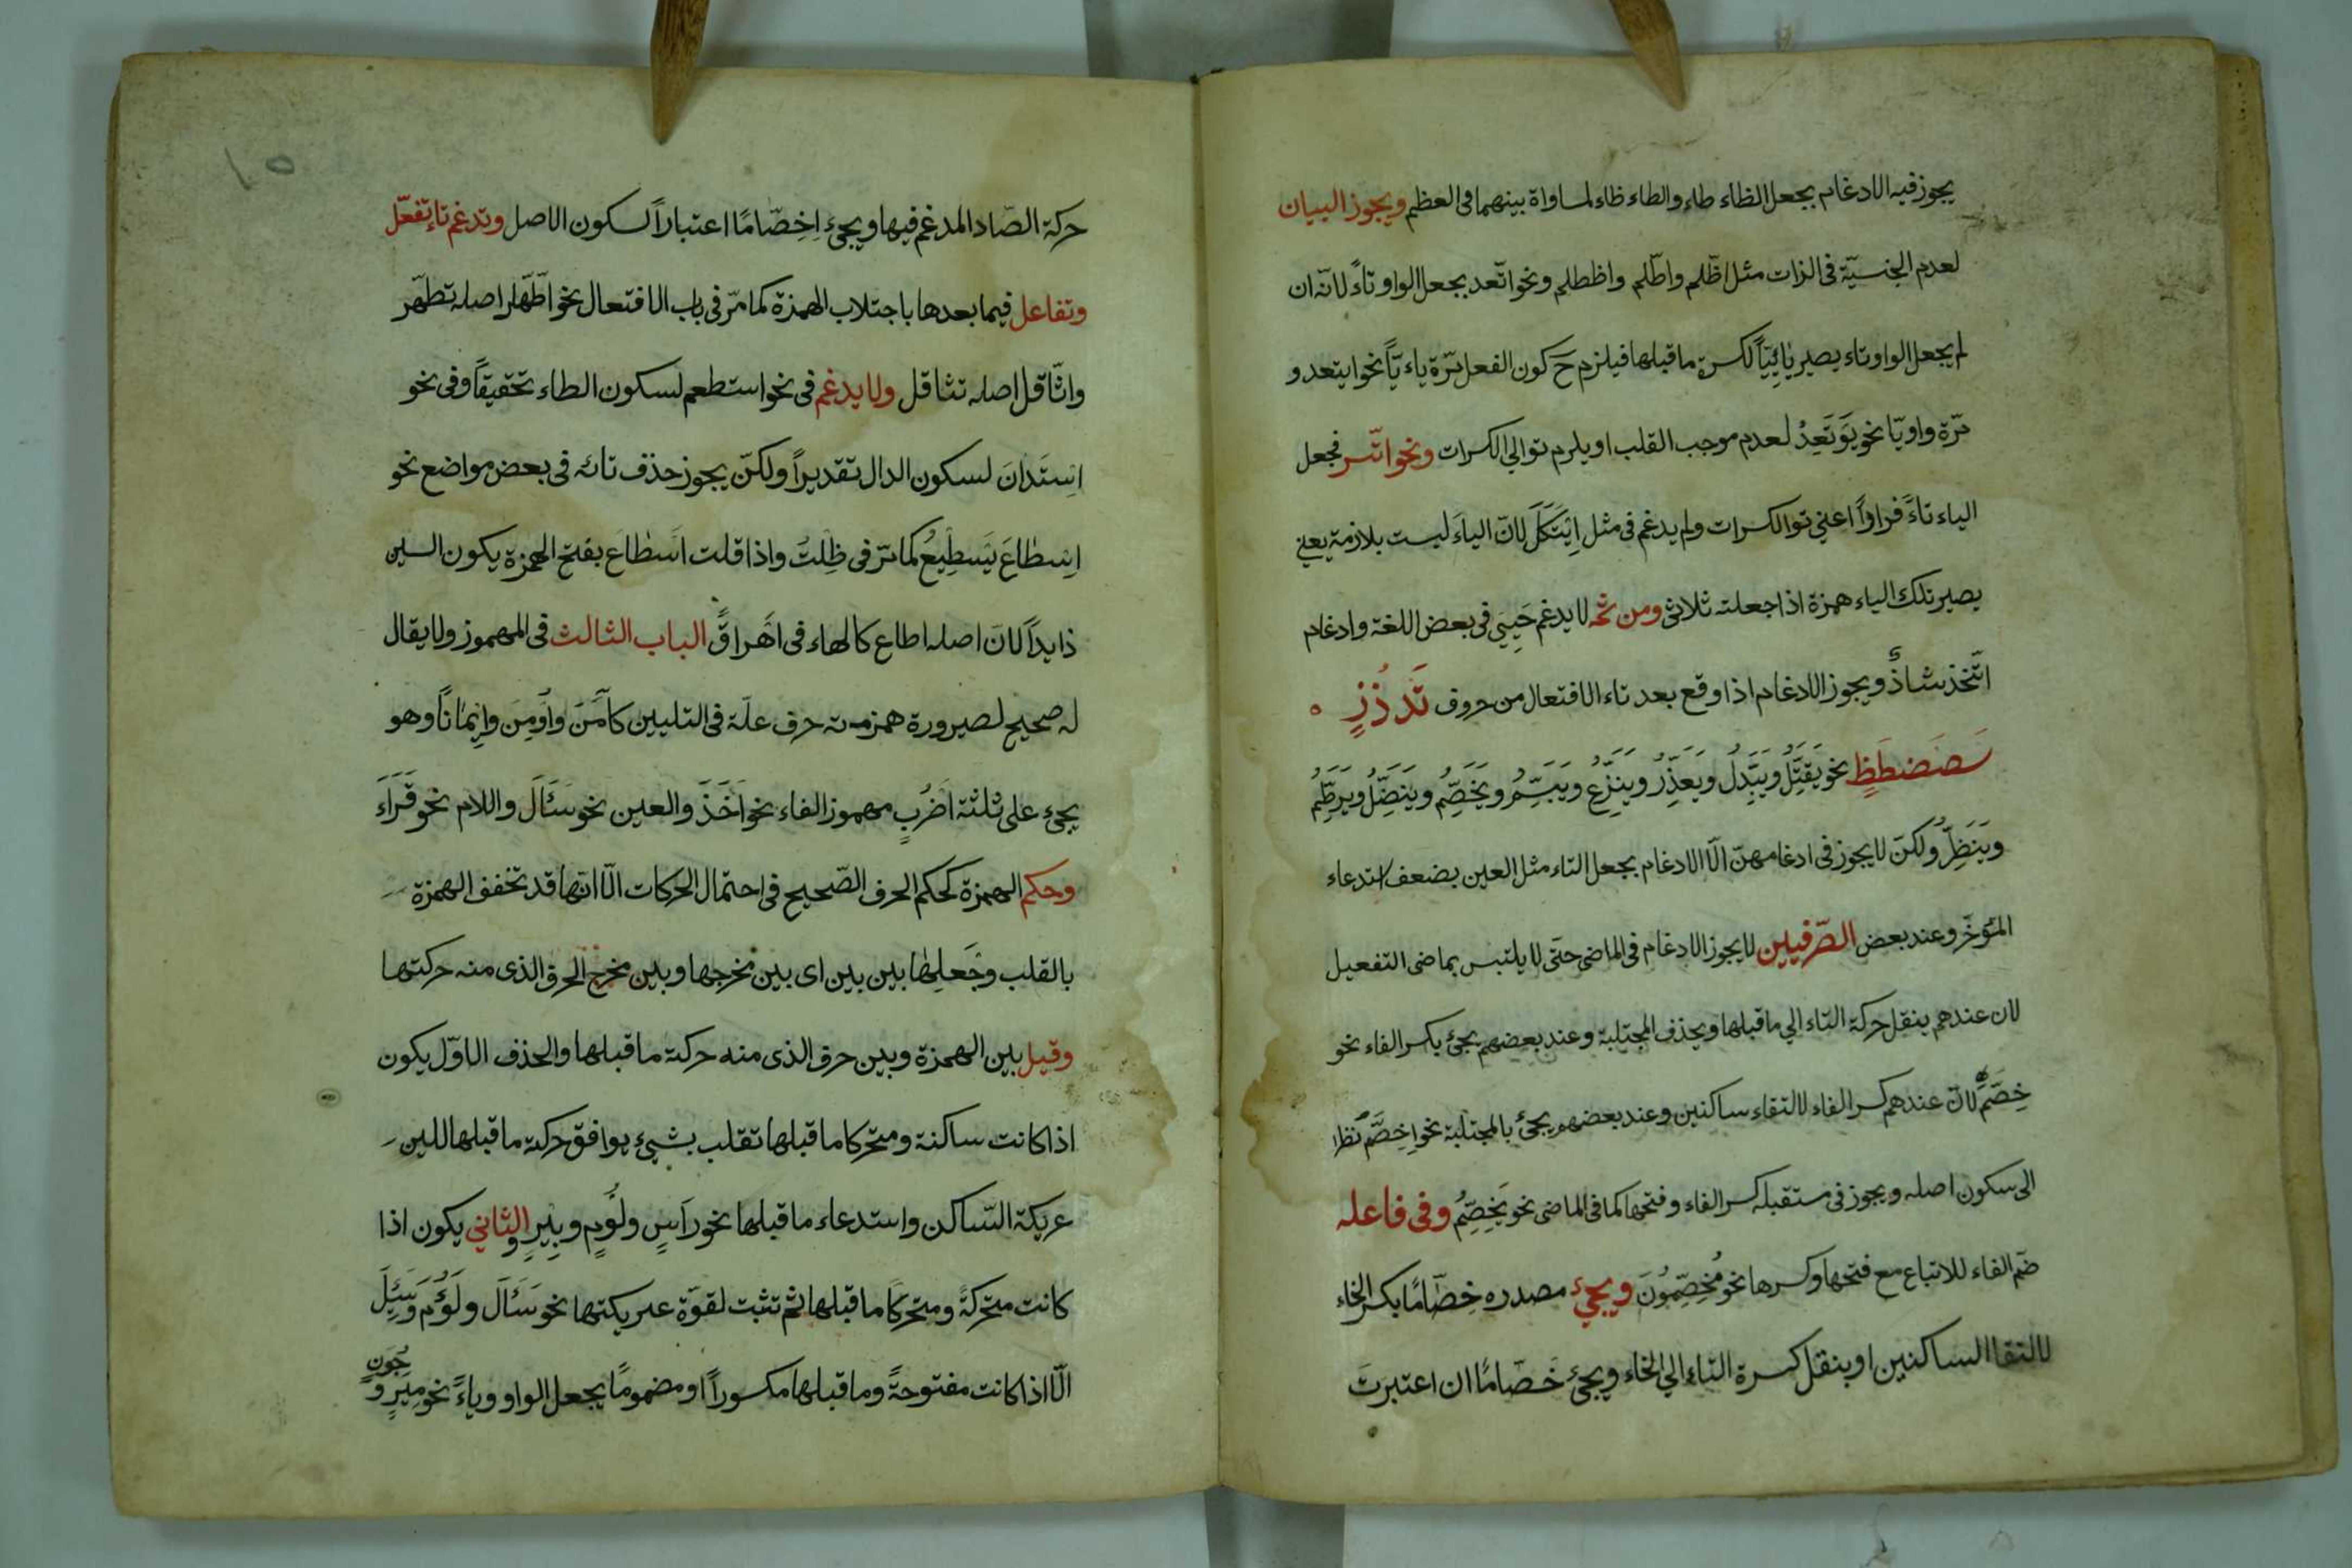 يجوز فيه الادغام بجعل الظاء طاء والطاء ظاء لمساواة بينهما فى العظم ويجوز البيان
لعدم الجنسيّة فى الزات مثل اظّلم واطّلم واظطلم ونحو اتّعد بجعل الواو تاءً لانّه ان
لم يجعل الواو تاء يصير يائِيّاً لكسرة ما قبلها فيلزم ح كون الفعل مرّة ياءيّاً نحو ايتعد و
مرّة واويّا نحو يَوْتَعِدُ لعدم موجب القلب او يلزم توالي الكسرات ونحو اتّسر فجعل
الياء تاءً فراراً اعني توالكسرات ولم يدغم فى مثل اِيْتَكَلَ لانّ الياءَ ليست بلازمة يعني
يصير تلك الياء همزة اذا جعلته ثلاثى ومن ثمّه لا يدغم حَيِيَ فى بعض اللغة وادغام
اتّخذ شاذٌّ ويجوز الادغام اذا وقع بعد تاء الافتعال من حروف تَدُذُزٍ
سَصَضطَظٍ نحو يَقَتِّلُ ويَبَدِّلُ ويَعَذِّرُ ويَنَزِّعُ ويَبَسِّمُ ويَخَصِّمُ ويَنَضِّلُ ويَرَطِّمُ
ويَنَظِّرُ ولكنّ لا يجوز فى ادغامهنّ الّا الادغام بجعل التاء مثل العين بضعف استدعاء
المؤخّر وعند بعض الصّرفيين لا يجوز الادغام فى الماضى حتّى لا يلتبس بماضى التفعيل
لان عندهم ينقل حركة التاء الي ما قبلها ويحذف المجتلبة وعند بعضهم يجئ بكسر الفاء نحو
خِصَّمَ لانّ عندهم كسر الفاء لالتقاء ساكنين وعند بعضهم يجئ بالمجتلبة نحو اِخِصَّمَ نظرا
الى سكون اصله ويجوز فى مستقبله كسر الفاء وفتحها كما فى الماضى نحو يَخِصِّمُ وفى فاعله
ضم الفاء للاتباع مع فتحها وكسرها نحو مُخِصِّمُونَ ويجئ مصدره خِصّامًا بكسر الخاء
لالتقا الساكنين او ينقل كسرة التاء الي الخاء ويجئ خَصّامًا ان اعتبرت
١٥
حركة الصّاد المدغم فيها ويجئ اِخِصّامًا اعتباراً لسكون الاصل وتدغم تاء تفعّل
وتفاعل فيما بعدها باجتلاب الهمزة كما مرّ فى باب الافتعال نحو اطّهّر اصله تطهّر
واثّاقل اصله تثاقل ولا يدغم فى نحو استطعم لسكون الطاء تحقيقاً وفى نحو
اِستَدانَ لسكون الدال تقديراً ولكنّ يجوز حذف تائه فى بعض مواضع نحو
اِسطاعَ يَسطِيعُ كما مرّ فى ظِلتُ واذا قلت اَسْطاعَ بفتح الهمزة يكون السين
ذايداً لانَ اصله اطاع كالهاء فى اَهْراقَ الباب الثالث فى المهموز ولا يقال
له صحيح لصيرورة همزته حرف علّة فى التليين كآمَنَ واُومِنَ واِيْمانًا وهو
يجئ على ثلثة اضرُبٍ مهموز الفاء نحو اَخَذَ والعين نحو سَئَالَ واللام نحو قَرَاءَ
وحكم الهمزة كحكم الحرف الصّحيح فى احتمال الحركات الّا انّها قد تخفف الهمزة
بالقلب وجَعلِها بين بين اى بين مخرجها وبين مخرج الحرف الذى منه حركتها
وقيل بين الهمزة وبين حرف الذى منه حركة ما قبلها والحذف الاوّل يكون
اذا كانت ساكنة ومتحركا ما قبلها تقلب بشيئ يوافق حركة ما قبلها للين
عريكة السّاكن واستدعاء ما قبلها نحو رَاسٍ ولُومٍ وبِيرٍ والثاني يكون اذا
كانت متحركةً ومتحركاً ما قبلها ثم تثبت لقوّة عريكتها نحو سَئَالَ ولَؤُمَ وسَئِلَ
الّا اذا كانت مفتوحةً وما قبلها مكسوراً او مضمومًا يجعل الواو وياءً نحو مِيَرٍ و
جُوَنٍ